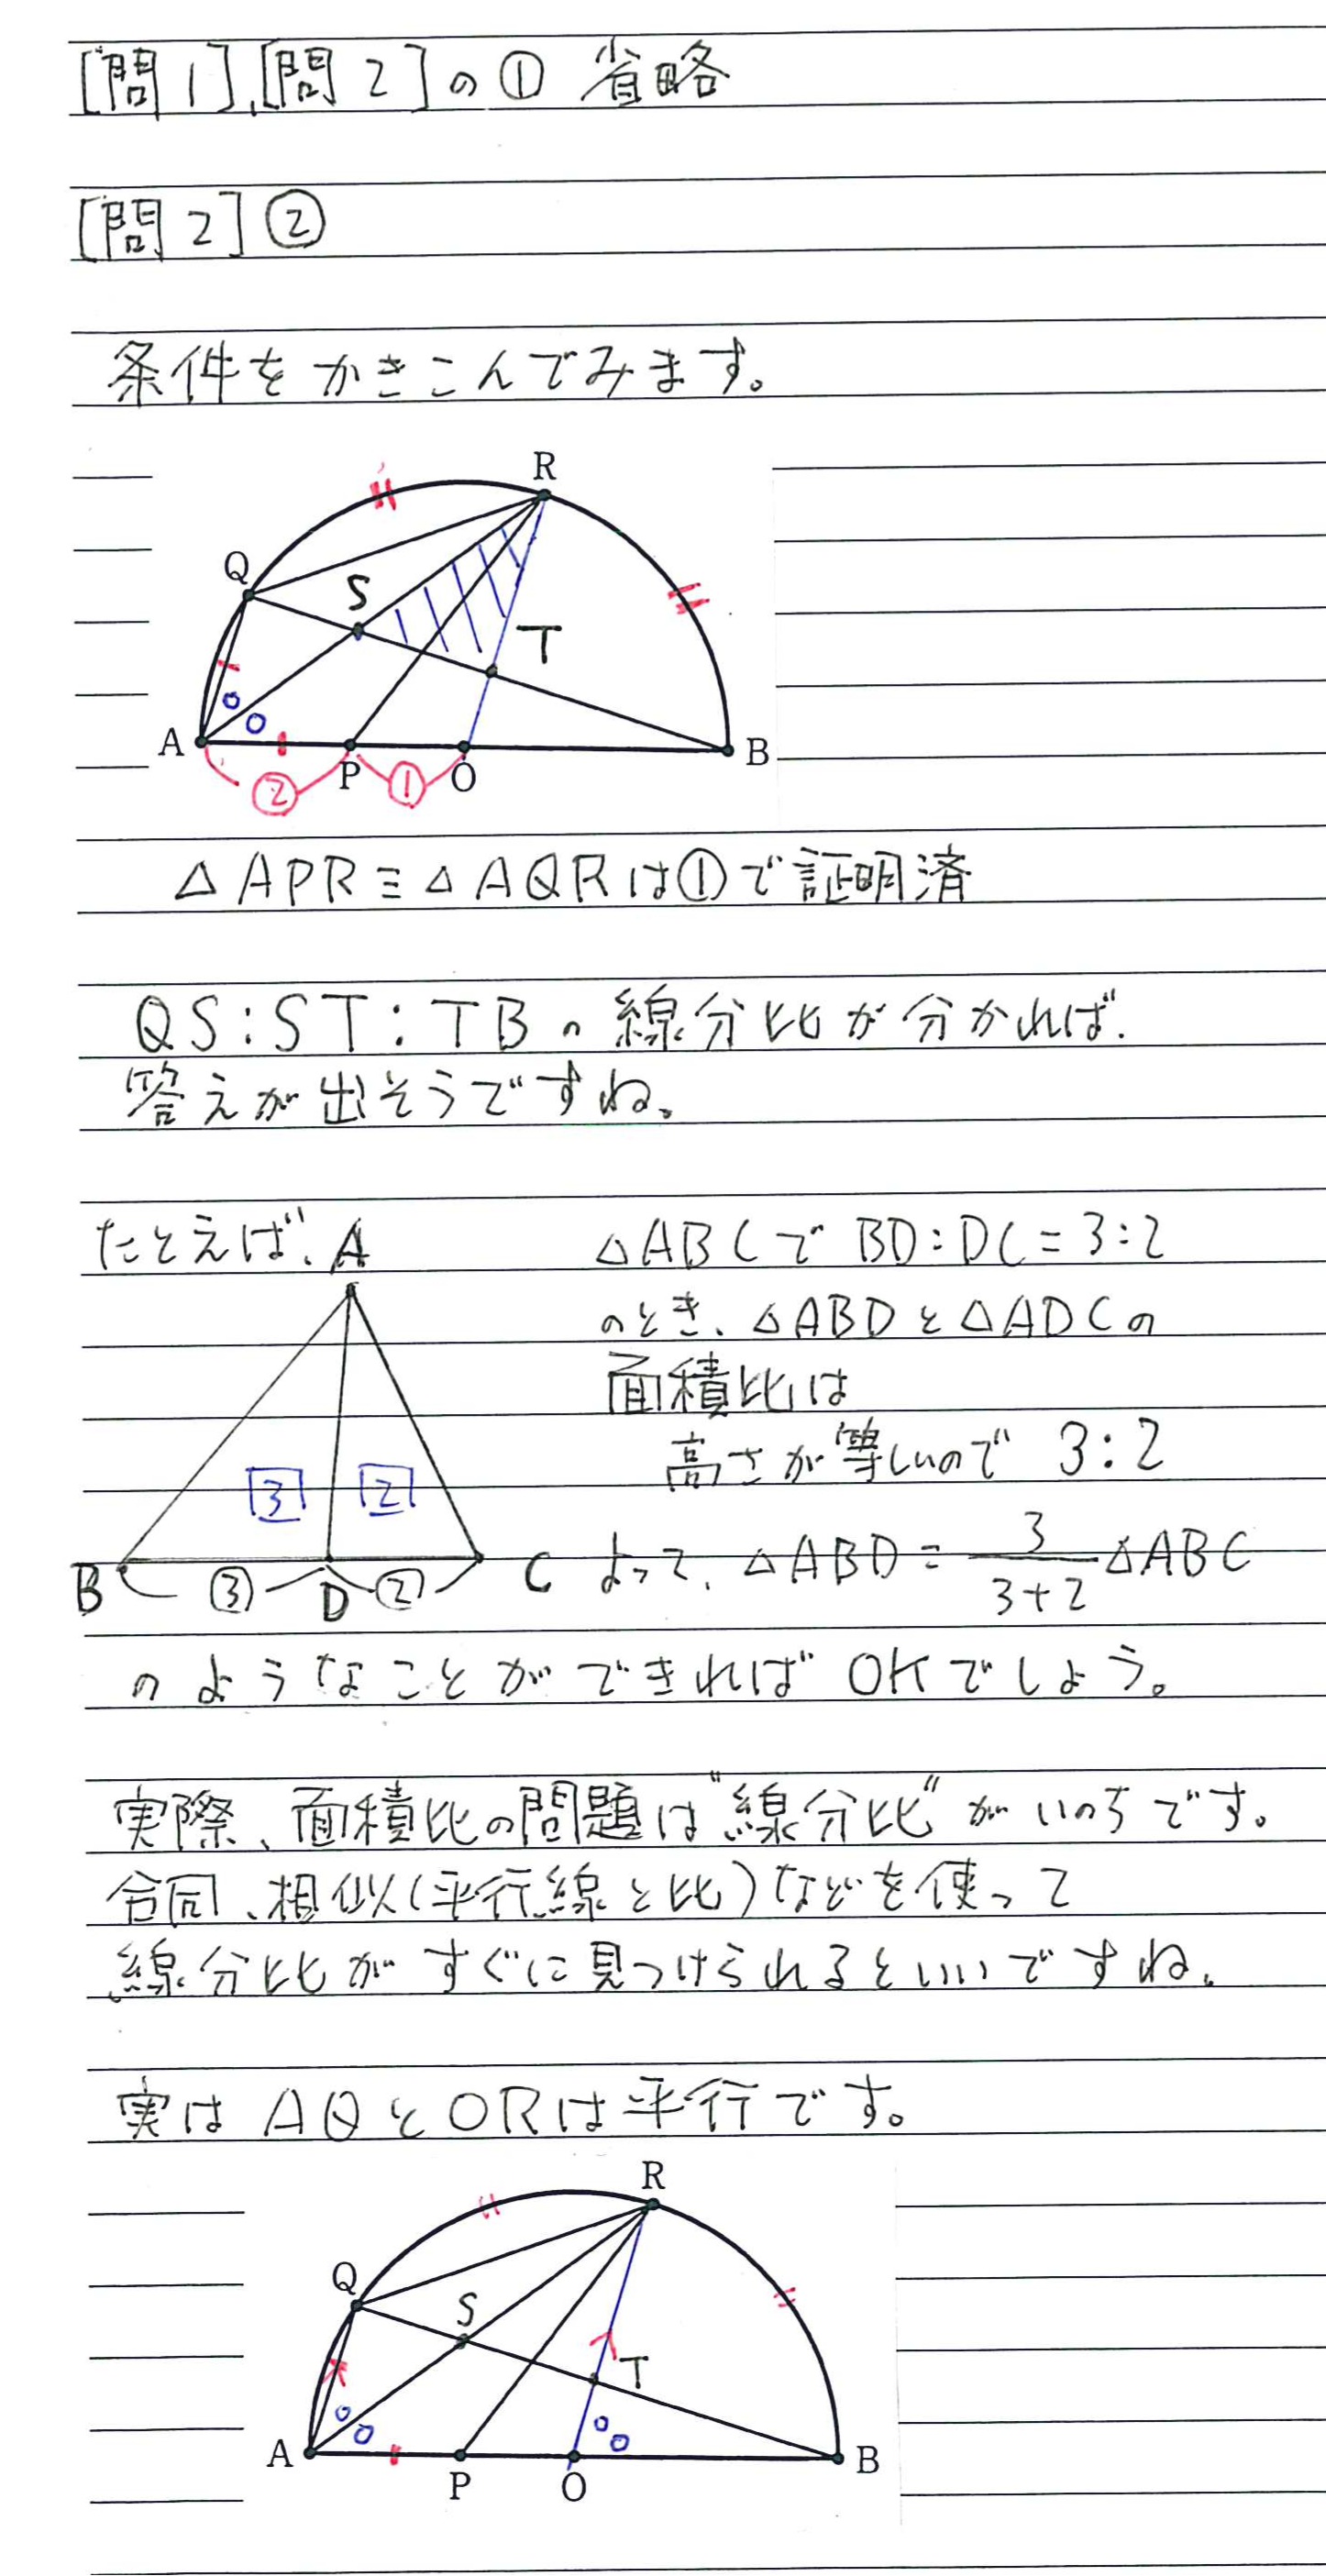 [問1],[問2]の① 省略
[問2]②
条件をかきこんでみます。
R
Q
S
T
A
P
O
B
②
①
△APR≡△AQRは①で証明済
QS:ST:TBの線分比が分かれば、
答えが出そうですね。
たとえば、A
△ABCでBD:DC=3:2
のとき、△ABDと△ADCの
面積比は
高さが等しいので 3:2
3 2
B ③ D ② C
よって、△ABD=3/(3+2)△ABC
のようなことができればOKでしょう。
実際、面積比の問題は"線分比"がいのちです。
合同、相似(平行線と比)などを使って
線分比がすぐに見つけられるといいですね。
実はAQとORは平行です。
R
Q
S
T
A
P
O
B